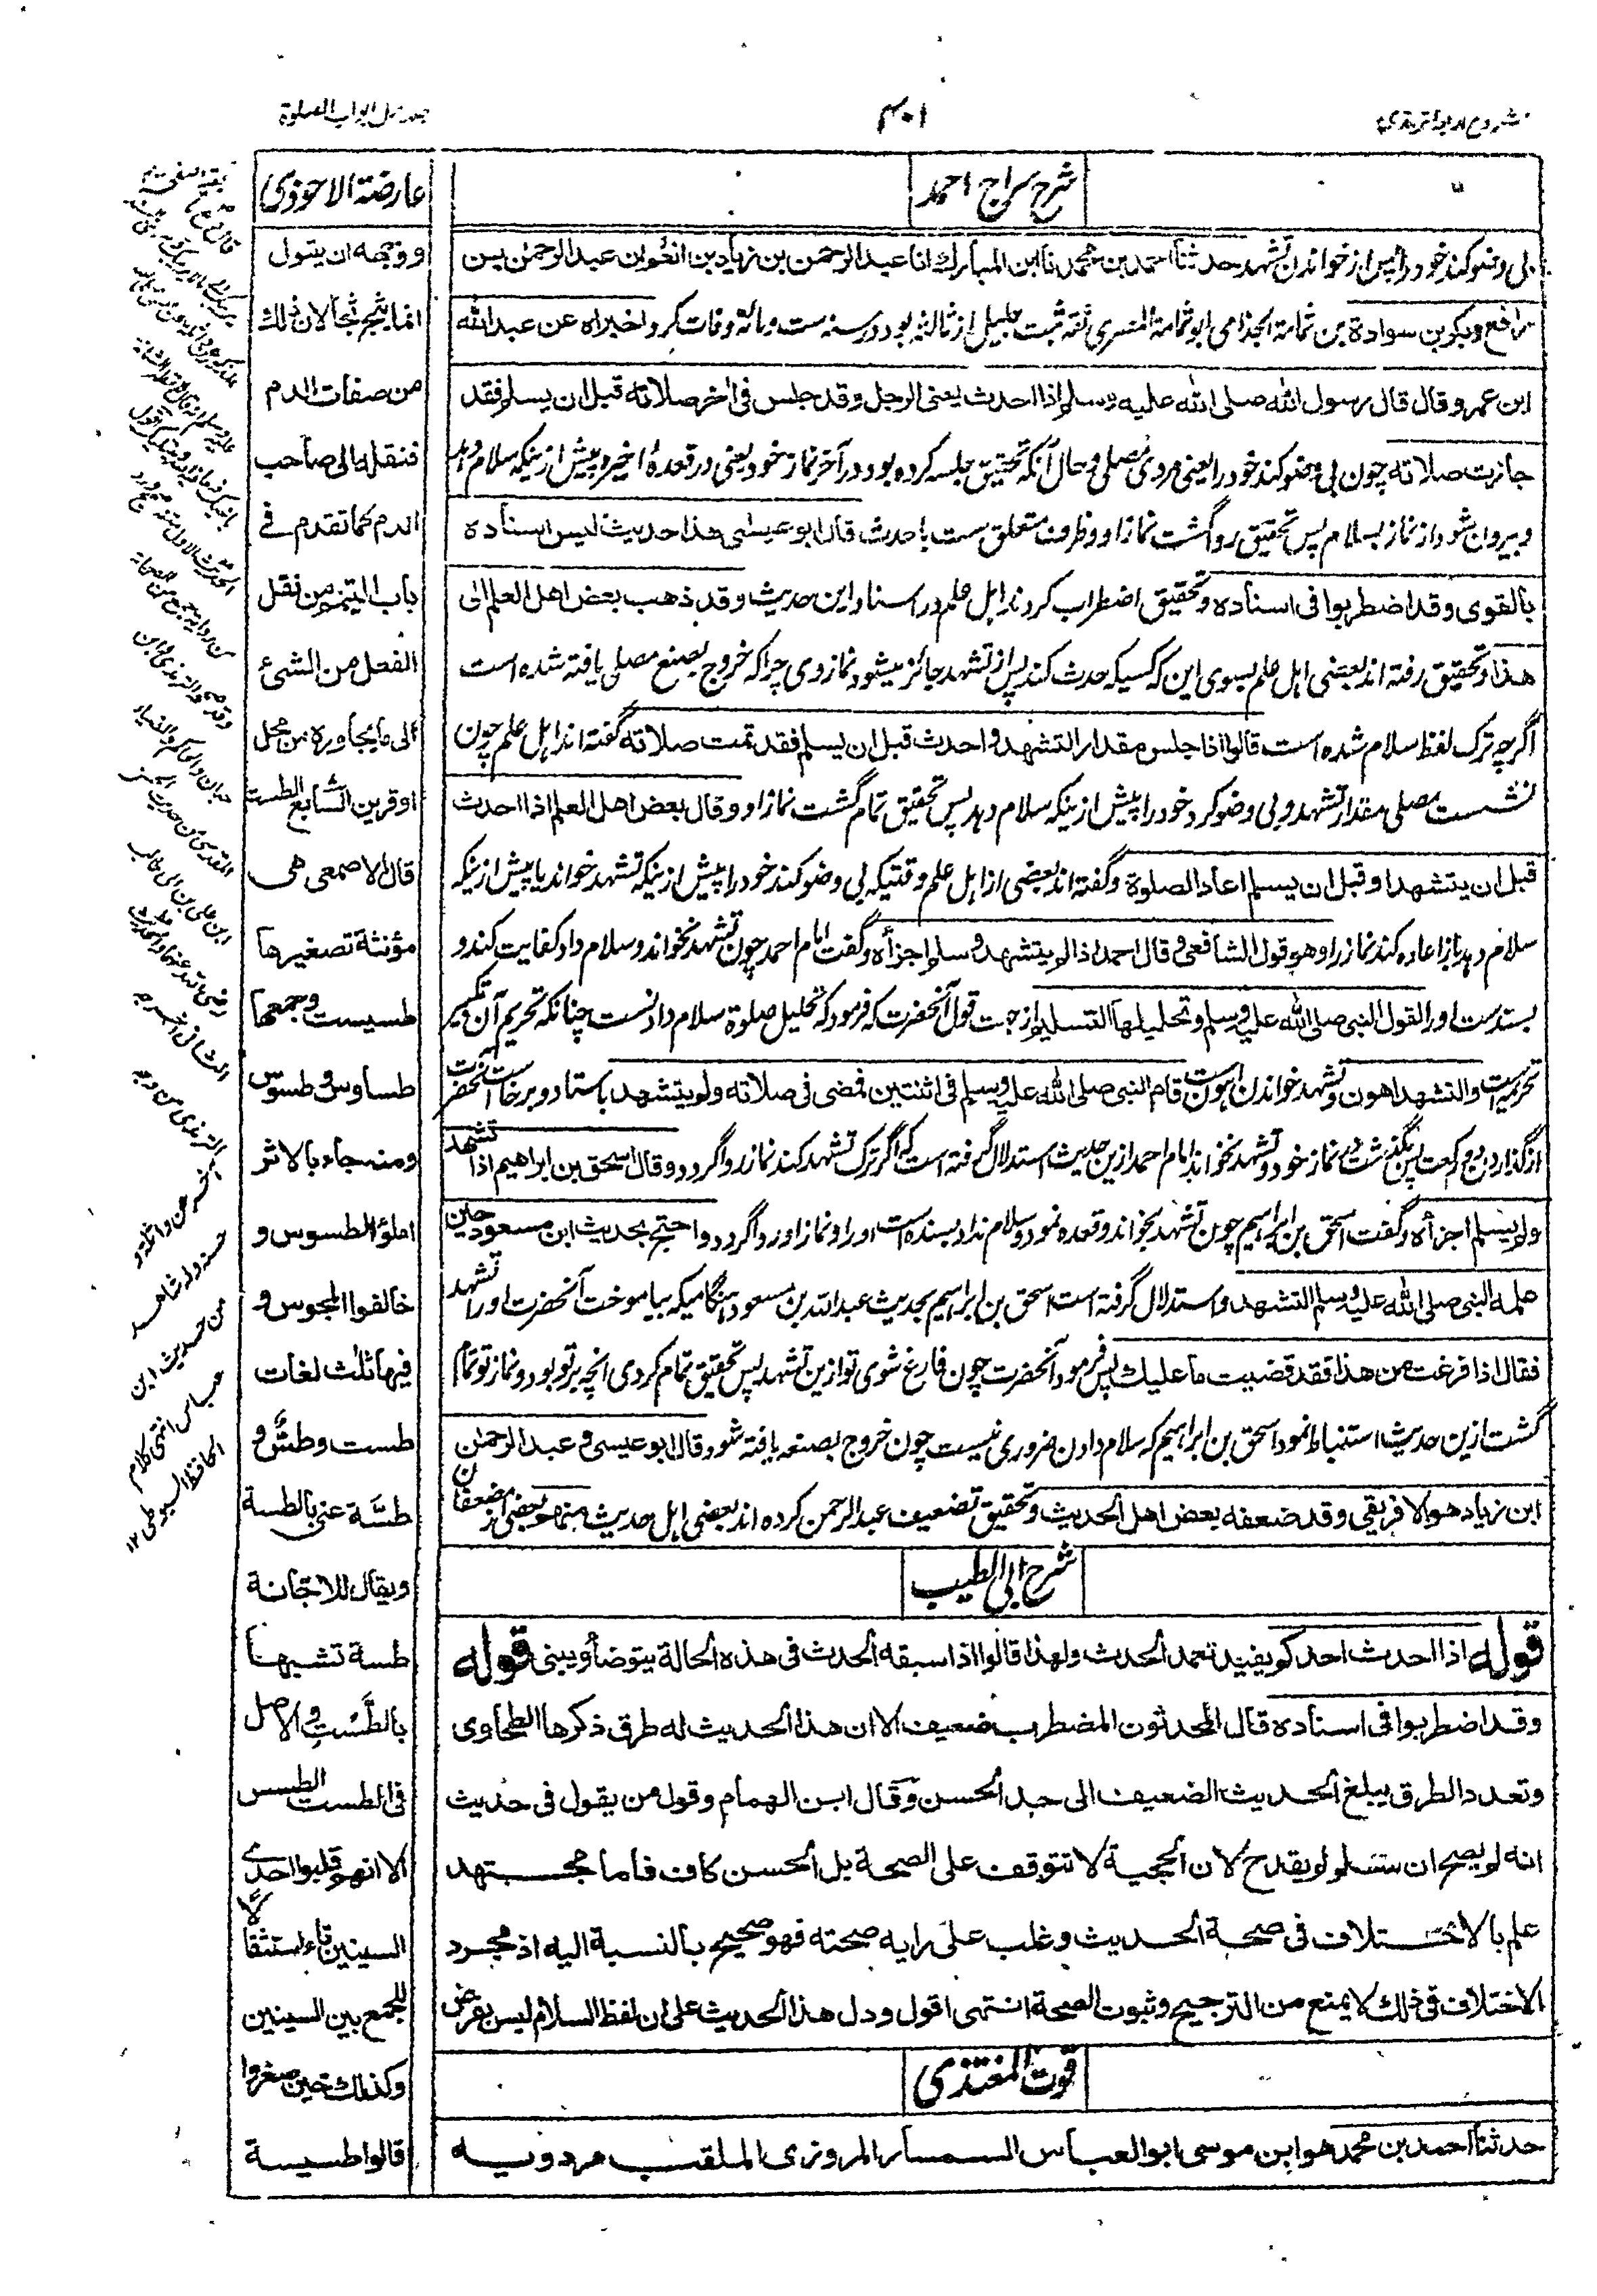 شروح اربعه ترمذی
۴۰۱
جلد اول ابواب الصلوة
شرح سراج احمد
بی وضو کند خود را پس از خواندن تشهد حدثنا احمد بن محمد نا ابن المبارك انا عبد الرحمن بن زياد بن انعم ان عبد الرحمن بن
رافع وبكر بن سوادة بن ثمامة الجذامی ابو ثمامة المصری ثقه ثبت جلیل از ثالثه بود در سنه ست ومائة وفات کرد اخبراه عن عبد الله
ابن عمرو قال قال رسول الله صلى الله عليه وسلم اذا احدث يعنى الرجل وقد جلس فى اخر صلاته قبل ان يسلم فقد
جازت صلاته چون بی وضو کند خود را یعنی مردی مصلی و حال آنکه تحقیق جلسه کرده بود در آخر نماز خود یعنی در قعدهٔ اخیر و پیش ازینکه سلام دهد
و بیرون شود از نماز بسلام پس تحقیق روا گشت نماز او و ظرف متعلق ست باحدث قال ابو عيسى هذا حديث ليس اسناده
بالقوى وقد اضطربوا فى اسناده و تحقیق اضطراب کردند اہل علم در اسناد این حدیث وقد ذهب بعض اهل العلم الى
هذا و تحقیق رفته اند بعضی اہل علم بسوی این که کسیکه حدث کند پس از تشهد جائز میشود نماز وی چراکه خروج بصنع مصلی یافته شده است
اگرچه ترک لفظ سلام شده است قالوا اذا جلس مقدار التشهد و احدث قبل ان يسلم فقد تمت صلاته گفته اند اہل علم چون
نشست مصلی مقدار تشهد و بی وضو کرد خود را پیش ازینکه سلام دہد پس تحقیق تمام گشت نماز او وقال بعض اهل العلم اذا احدث
قبل ان يتشهد او قبل ان يسلم اعاد الصلوة و گفته اند بعضی از اہل علم وقتیکه بی وضو کند خود را پیش ازینکه تشهد خواند یا پیش ازینکه
سلام دہد باز اعاده کند نماز را وهو قول الشافعى وقال احمد اذا لم يتشهد وسلم اجزأه و گفت امام احمد چون تشهد نخواند و سلام داد کفایت کند و
بسند ست او را لقول النبى صلى الله عليه وسلم وتحليلها التسليم از جهت قول آنحضرت که فرمود که تحلیل صلوة سلام دادنست چنانکه تحریم آن تکبیر
تحریمیست والتشهد اهون و تشهد خواندن اہون ست قام النبى صلى الله عليه وسلم فى اثنتين فمضى فى صلاته ولم يتشهد باستاد و برخاست آنحضرت
از گذاردن دو رکعت پس بگذشت در نماز خود و تشهد نخواند امام احمد ازین حدیث استدلال گرفته است که اگر ترک تشهد کند نماز روا گردد وقال اسحق بن ابراهيم اذا تشهد
ولم يسلم اجزأه و گفت اسحق بن ابراہیم چون تشهد بخواند و قعده نمود و سلام نداد بسنده ست او را و نماز او روا گردد واحتج بحديث ابن مسعود حين
علمه النبى صلى الله عليه وسلم التشهد و استدلال گرفته است اسحق بن ابراہیم بحدیث عبدالله بن مسعود ہنگامیکه بیاموخت آنحضرت او را تشهد
فقال اذا فرغت من هذا فقد قضيت ما عليك پس فرمود آنحضرت چون فارغ شوی تو ازین تشهد پس تحقیق تمام کردی انچه بر تو بود و نماز تو تمام
گشت ازین حدیث استنباط نمود اسحق بن ابراہیم که سلام دادن ضروری نیست چون خروج بصنعه یافته شود قال ابو عيسى وعبد الرحمن
ابن زياد هو الافريقى وقد ضعفه بعض اهل الحديث و تحقیق تضعیف عبدالرحمن کرده اند بعضی اہل حدیث منهم
شرح ابی الطیب
قوله اذا احدث احدكم يفيد تعمد الحدث ولهذا قالوا اذا سبقه الحدث فى هذه الحالة يتوضأ ويبنى قوله
وقد اضطربوا فى اسناده قال المحدثون المضطرب ضعيف الا ان هذا الحديث له طرق ذكرها الطحاوى
وتعدد الطرق يبلغ الحديث الضعيف الى حد الحسن وقال ابن الهمام وقول من يقول فى حديث
انه لم يصح ان سلم لم يقدح لان الحجية لا تتوقف على الصحة بل الحسن كاف فاما مجتهد
علم بالاختلاف فى صحة الحديث وغلب على رايه صحته فهو صحيح بالنسبة اليه اذ مجرد
الاختلاف فى ذلك لا يمنع من الترجيح وثبوت الصحة انتهى اقول ودل هذا الحديث على ان لفظ السلام ليس بفرض
قوت المغتذی
حدثنا احمد بن محمد هو ابن موسى ابو العباس السمسار المروزى الملقب مردويه
عارضة الاحوذی
ووجهه ان يقول
انما يثج ثجا لان ذلك
من صفات الدم
فنقله الى صاحب
الدم كما تقدم فى
باب التيمم من نقل
الفعل من الشئ
الى ما يجاوره من محل
او قرين السابع الطست
قال الاصمعى هى
مؤنثة تصغيرها
طسيست وجمعها
طساوس وطسوس
ومنه جاء بالاثر
املؤا الطسوس و
خالفوا المجوس و
فيها ثلث لغات
طست وطس و
طسة عنى بالطسة
ويقال للاجانة
طسة تشبيها
بالطست والاصل
فى الطست الطس
الا انهم قلبوا احدى
السينين تاء استثقالا
للجمع بين السينين
وكذلك حين صغروا
قالوا طسيسة
من حديث ابن
عباس انتهى كلام
الحافظ السيوطى ۱۲